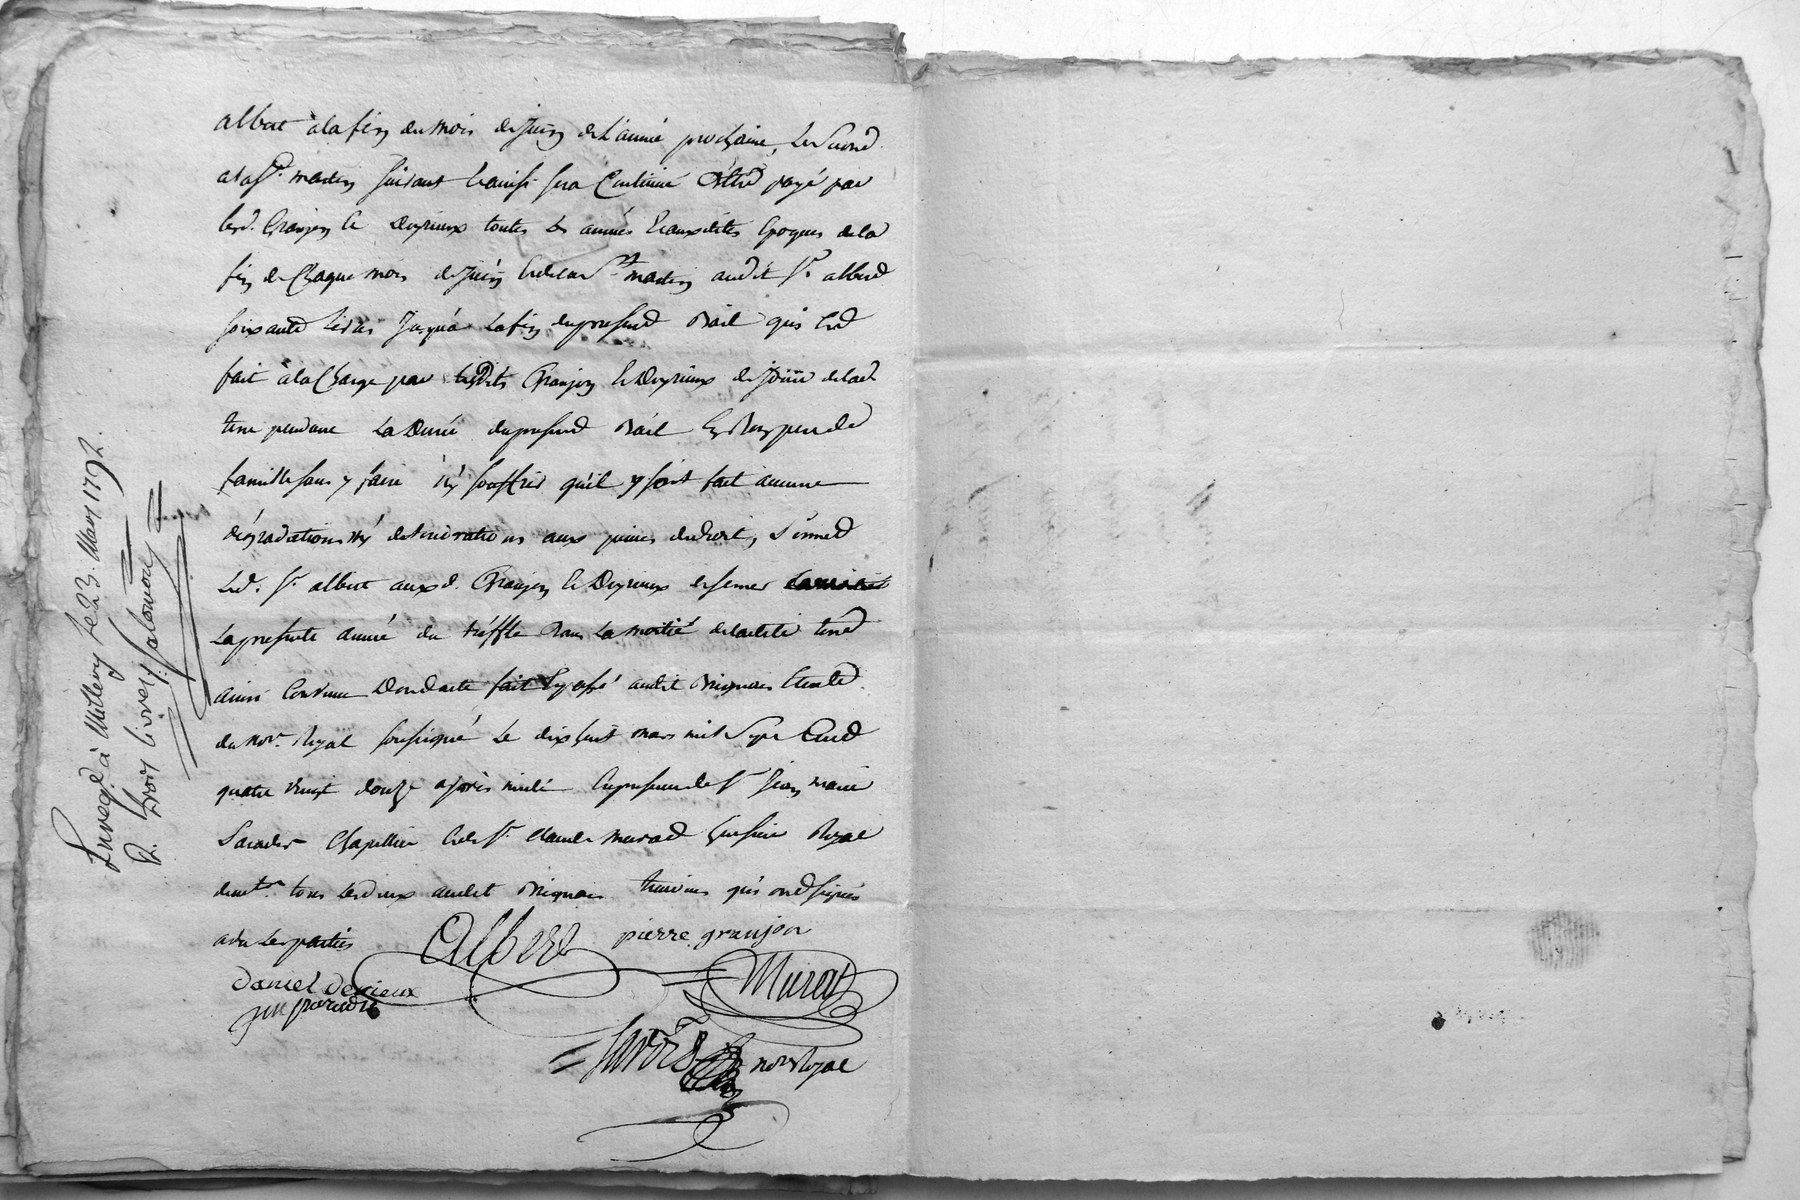 albert à la fin du mois de Juin de l'année prochaine, le second
a la St. martin suivant Et ainsi sera Continué Et payé par
lesd. Granjon Et Deyrieux toutes les années Et auxdites Epoques de la
fin de Chaque mois de Juin Et de la St martin audit Sr. albert
soixante livres Jusqu'à la fin du present Bail qui Est
fait à la Charge par lesdits Granjon Et Deyrieux de Jouir de lade
terre pendant La Durée du present Bail En Bon pere de
famille sans y faire ny souffrir qu'il y soit fait aucune
dégradations ny deteriorations aux peines de droit, Permet
Led. Sr. albert auxd. Granjon Et Deyrieux de semer
La presente année du tréffle Dans La moitié de ladite terre
ainsi Convenu Dont acte fait Et passé audit Brignais Etude
du nore. Royal soussigné Le dix huit mars mil Sept Cent
quatre vingt douze après midi En presence de Sr Jean marie
Chapellier Et de Sr. Claude murat huissier Royal
demts. tous les deux audit Brignais temoins qui ont signés
avec Les parties
Albert pierre granjon
daniel derieux
Murat
nore Royal
Enregé. à Millery le 23. Mars 1792.
R. trois livres. Salomon